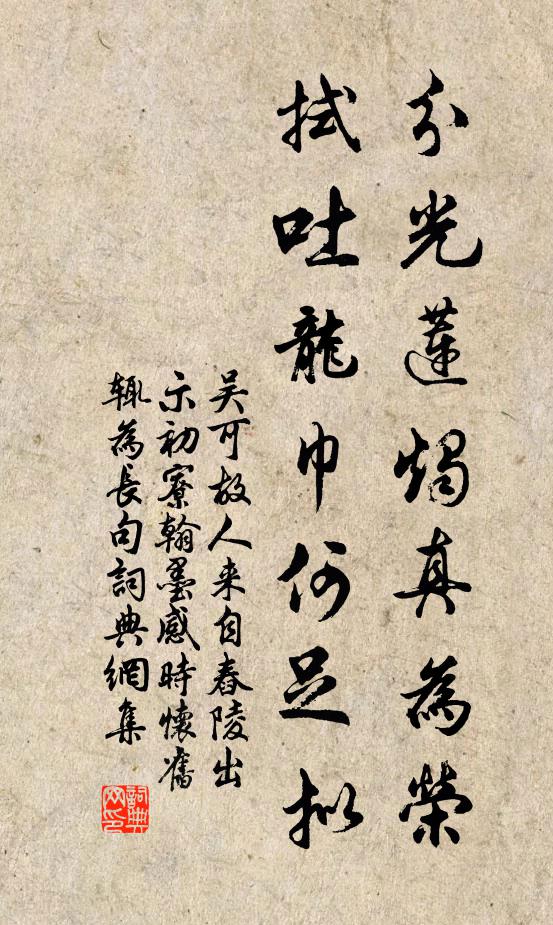 分光蓮燭真為榮
拭吐龍巾何足拟
吴可故人来自舂陵出
示初寮翰墨感時懷舊
輒為長句詞典網集
詞典
网印